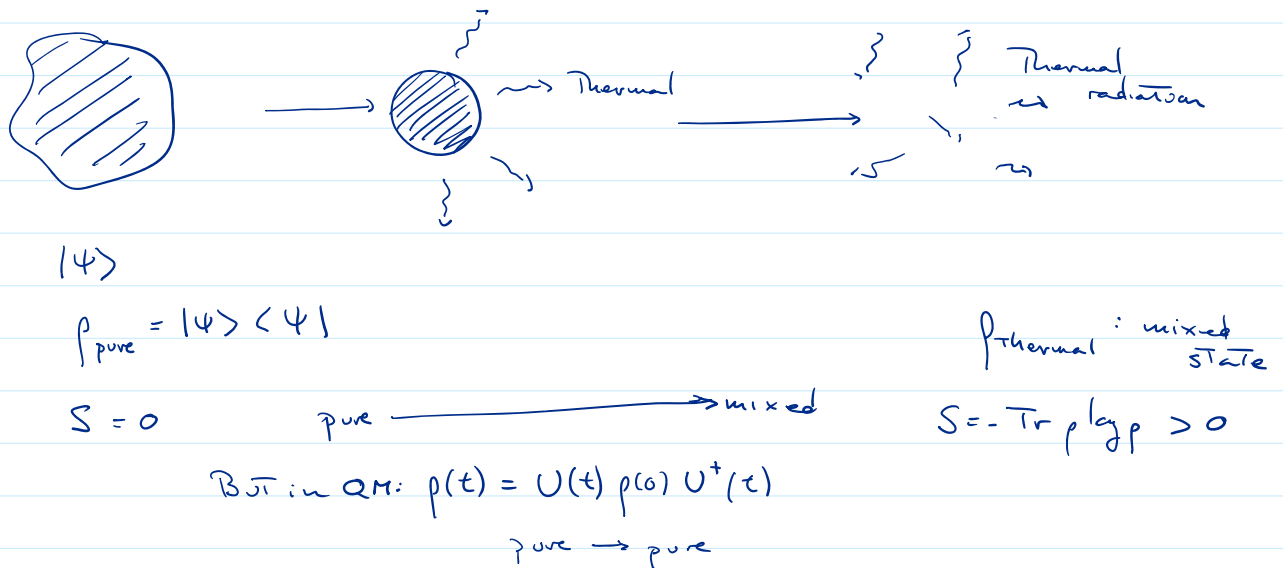 Thermal
Thermal
radiation
|ψ⟩
ρ_pure = |ψ⟩⟨ψ|
ρ_Thermal : mixed
state
S = 0
pure ⟶ mixed
S = - Tr ρ log ρ > 0
But in QM: ρ(t) = U(t) ρ(0) U†(t)
pure → pure